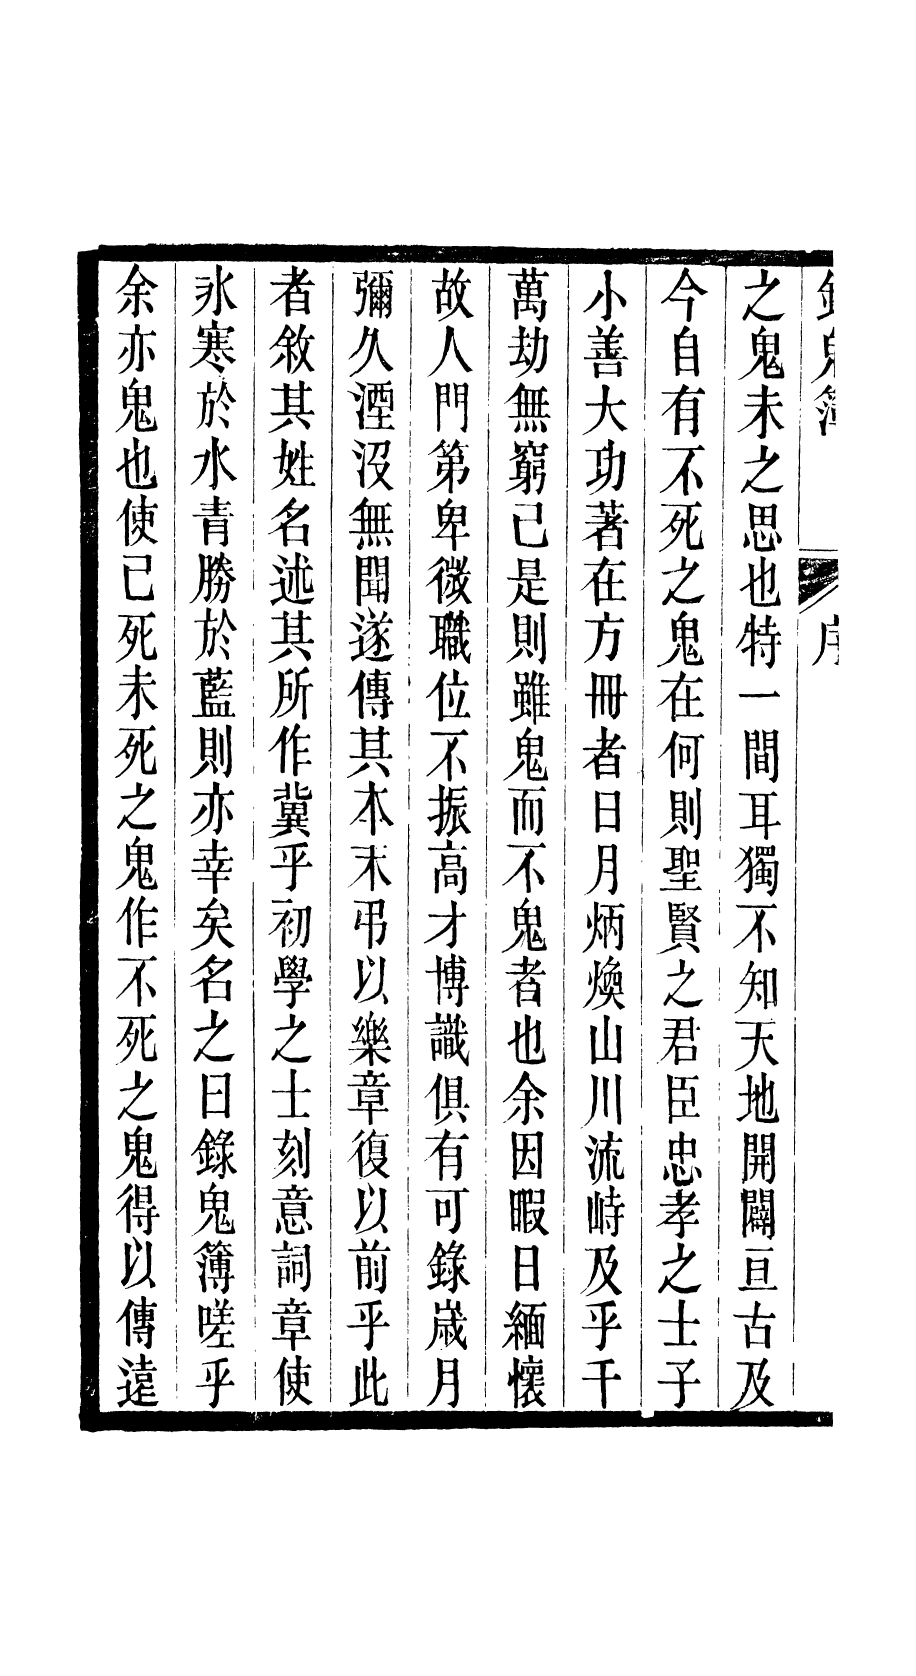 錄鬼簿
序
之鬼未之思也特一間耳獨不知天地開闢亘古及
今自有不死之鬼在何則聖賢之君臣忠孝之士子
小善大功著在方冊者日月炳煥山川流峙及乎千
萬劫無窮已是則雖鬼而不鬼者也余因暇日緬懷
故人門第卑微職位不振高才博識俱有可錄歲月
彌久湮沒無聞遂傳其本末弔以樂章復以前乎此
者敘其姓名述其所作冀乎初學之士刻意詞章使
氷寒於水青勝於藍則亦幸矣名之曰錄鬼簿嗟乎
余亦鬼也使已死未死之鬼作不死之鬼得以傳遠